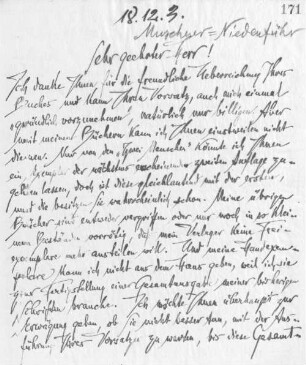 171
18.12.3.
Muschner-Niedenführ
Sehr geehrter Herr!
Ich danke Ihnen für die freundliche Uebersendung Ihres
Buches und kann Ihren Vorsatz, auch mich einmal
vorzunehmen, natürlich nur billigen. Aber
mit meinen Büchern kann ich Ihnen einstweilen nicht
dienen. Nur von den könnte ich Ihnen
ein Exemplar der nächstens erscheinenden zweiten Auflage zu-
gehen lassen, doch ist dies gleichlautend mit der ersten,
und die besitzen Sie wahrscheinlich schon. Meine übrigen
Bücher sind entweder vergriffen oder nur noch in so klei-
nen Beständen vorrätig, daß mein Verleger keine Frei-
exemplare mehr austeilen will. Und meine Handexem-
plare kann ich nicht aus dem Haus geben, weil ich sie
zur Fertigstellung einer Gesamtausgabe meiner bisherigen
Schriften brauche. Ich möchte Ihnen überhaupt zur
Erwägung geben, ob Sie nicht besser tun, mit der Aus-
führung Ihres Vorsatzes zu warten, bis diese Gesamt-